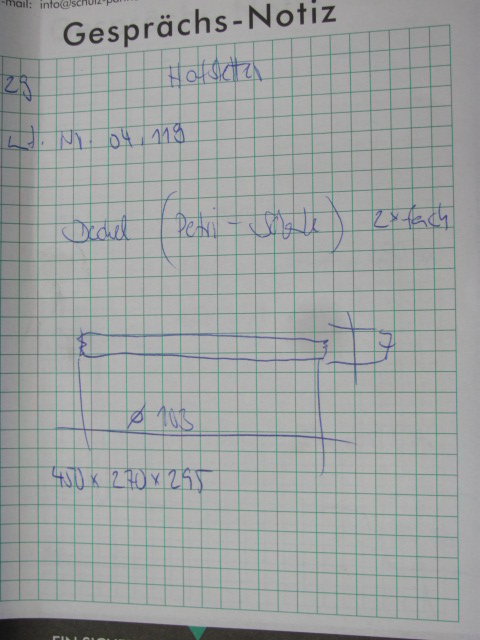 mail: info@schulz-
Gesprächs-Notiz
29
Lf. Nr. 04.119
Deckel (Petri-Schale) 2xfach
7
ø 103
450 x 270 x 295